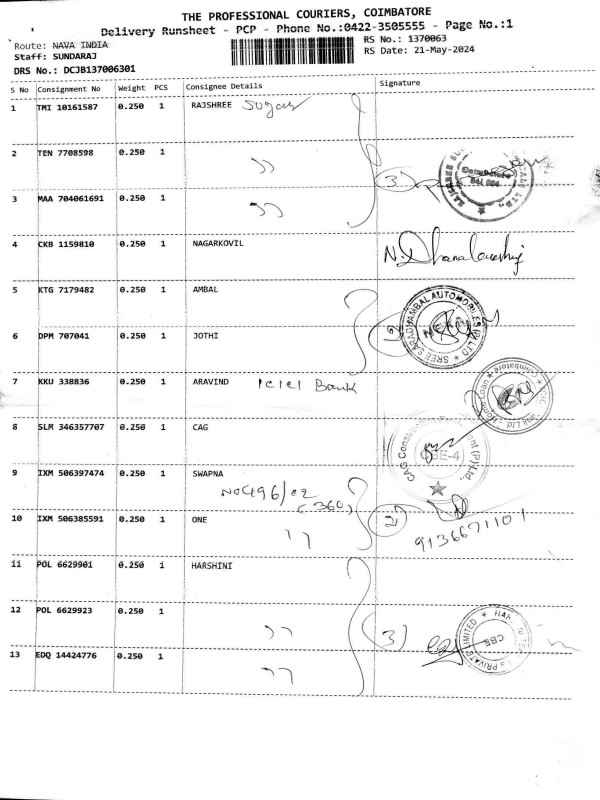 THE PROFESSIONAL COURIERS, COIMBATORE
Delivery Runsheet - PCP - Phone No.:0422-3505555 - Page No.:1
Route: NAVA INDIA
RS No.: 1370063
Staff: SUNDARAJ
RS Date: 21-May-2024
DRS No.: DCJB137006301
S No Consignment No Weight PCS Consignee Details Signature
1 TMI 10161587 0.250 1 RAJSHREE Sugars
2 TEN 7708598 0.250 1 ,,
3
3 MAA 704061691 0.250 1 ,,
4 CKB 1159810 0.250 1 NAGARKOVIL
5 KTG 7179482 0.250 1 AMBAL
AMBAL AUTOMOBILES (P) LTD ★ SREE SARADH
6 DPM 707041 0.250 1 JOTHI
7 KKU 338836 0.250 1 ARAVIND ICICI Bank
Home Loan ★ Coimbatore
8 SLM 346357707 0.250 1 CAG
CAG Construction (P) Ltd.,
CBE-4
9 IXM 506397474 0.250 1 SWAPNA
No 496/02
(360)
10 IXM 506385591 0.250 1 ONE ,,
2
9136671101
11 POL 6629901 0.250 1 HARSHINI
12 POL 6629923 0.250 1 ,,
3
PRIVATE LIMITED
CBE
13 EDQ 14424776 0.250 1 ,,